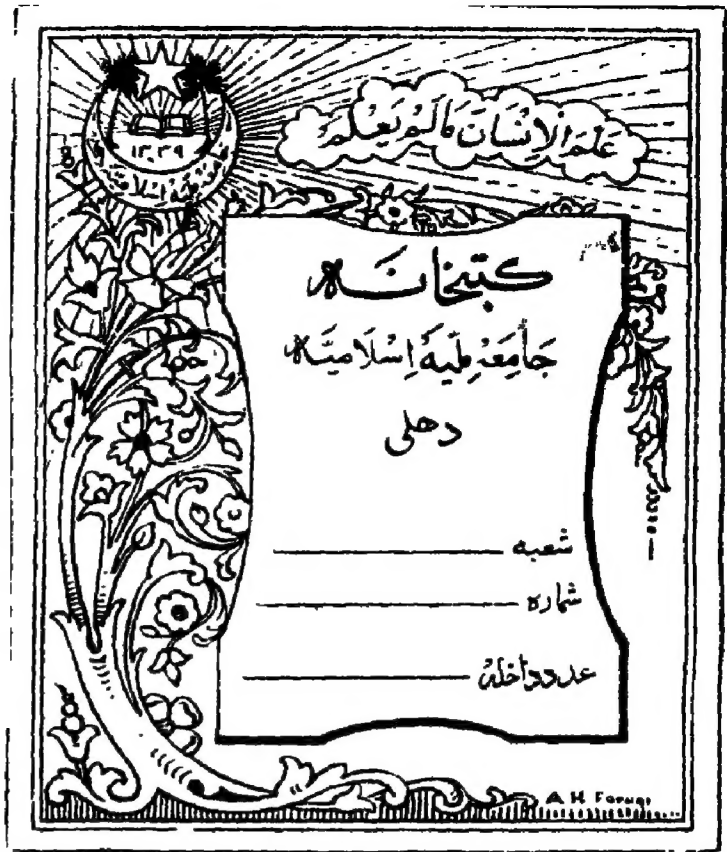 عَلَّمَ الْاِنْسَانَ مَا لَمْ یَعْلَمْ
۱۳۳۹
کتبخانہ
جَامِعَہ مِلّیَہ اِسْلَامیَّہ
دھلی
شعبہ
شمارہ
عدد داخلہ
A H Faruqi